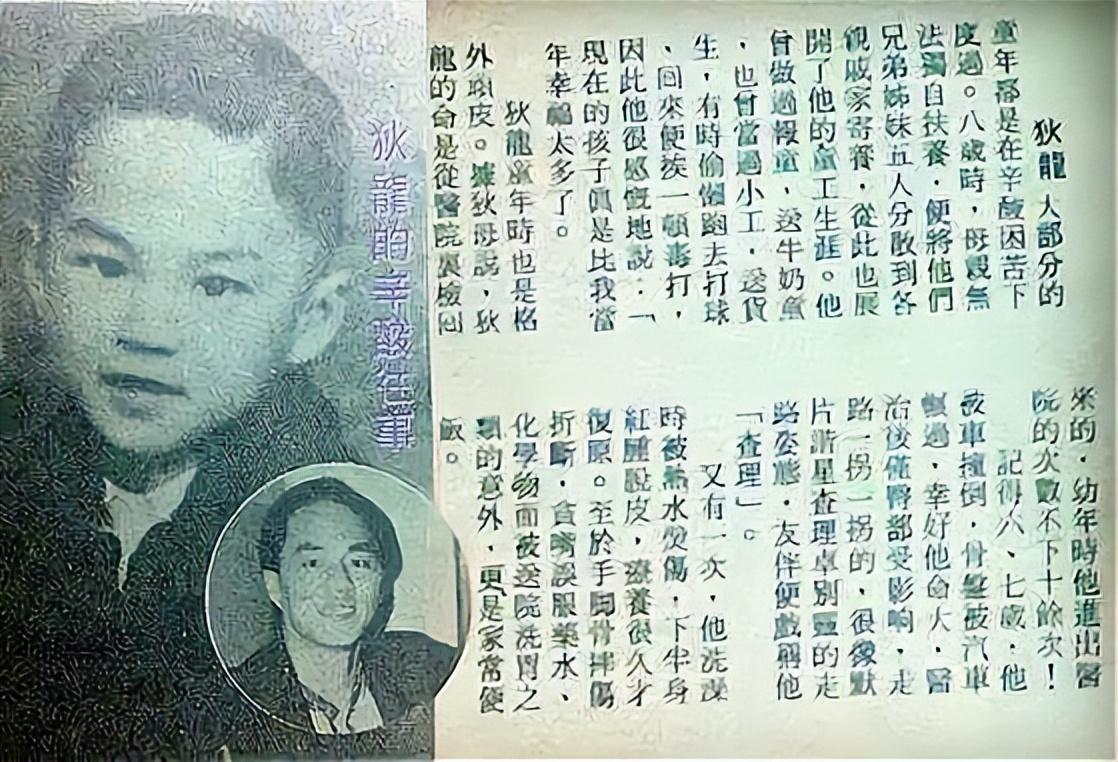 狄龍的辛酸往事
狄龍大部分的
童年都是在辛酸困苦下
度過。八歲時，母親無
法獨自扶養，便將他們
兄弟姊妹五人分散到各
親戚家寄養，從此也展
開了他的童工生涯。他
曾做過報童，送牛奶童
，也曾當過小工，送貨
生，有時偷懶跑去打球
，回來便挨一頓毒打，
因此他很感慨地說：「
現在的孩子真是比我當
年幸福太多了。
狄龍童年時也是格
外頑皮。據狄母說，狄
龍的命是從醫院裏檢回
來的，幼年時他進出醫
院的次數不下十餘次！
記得六、七歲，他
被車撞倒，骨盤被汽車
輾過，幸好他命大，醫
治後僅臀部受影响，走
路一拐一拐的，很像默
片諧星查理卓別靈的走
路姿態，友伴便戲稱他
「查理」。
又有一次，他洗澡
時被熱水燙傷，下半身
紅腫脫皮，療養很久才
復原。至於手脚骨摔傷
折斷，貪嘴誤服藥水、
化學物而被送院洗胃之
類的意外，更是家常便
飯。